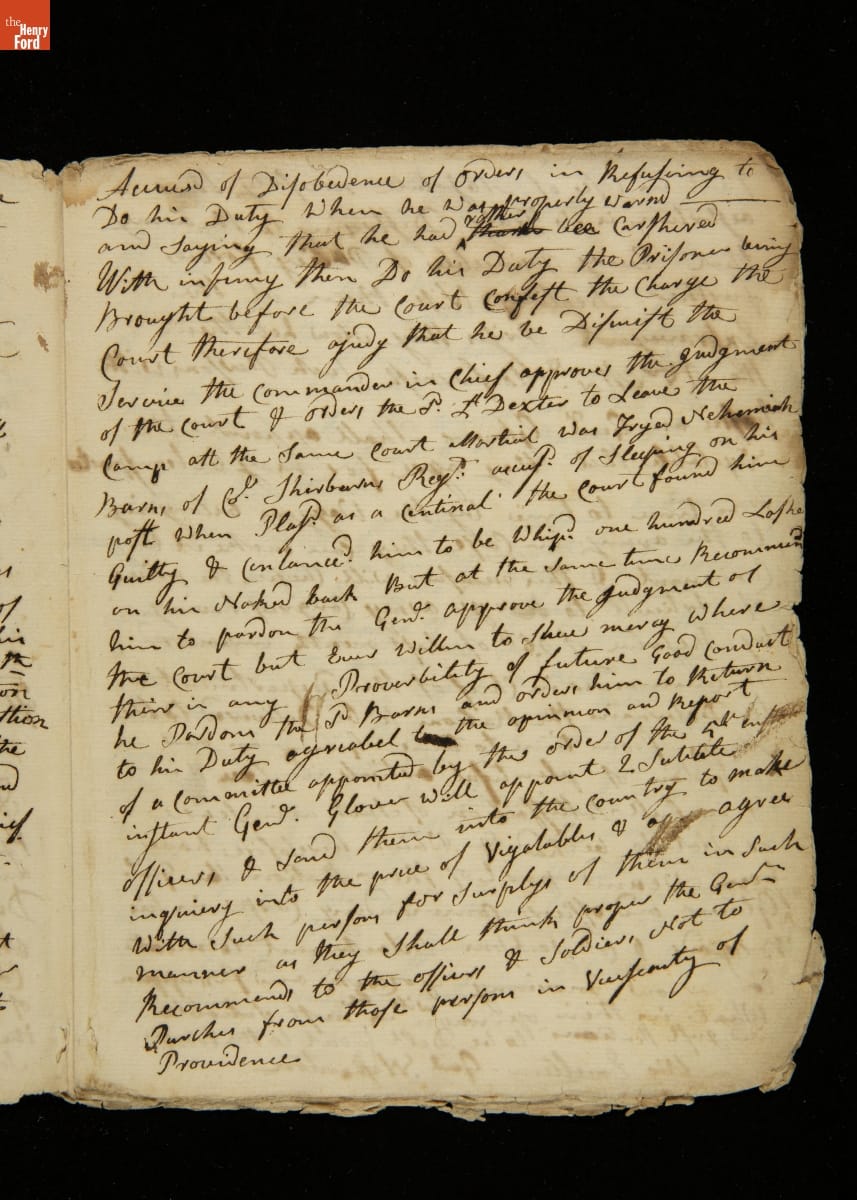 the
Henry
Ford
Accus'd of Disobedence of orders in Refuseing to
Do his Duty when he was properly warnd
and saying that he had rather bee Carshered
With infimy then Do his Duty the Prisoner being
Brought before the Court confest the Charge the
Court therefore ajudg that he be Dismist the
Service the commander in Chief approves the Judgment
of the court & orders the Sd. Lt Dexter to Leave the
Camp att the same Court Martial was Tryed Nehemiah
Barns of Col. Shirburns Regt. accusd. of Sleeping on his
post when Plasd. as a Centinal the Court found him
Guilty & Centanced. him to be Whipd. one hundred Lashe
on his Naked back But at the same time Recommend
him to pardon the Genl. approve the Judgment of
the Court but Ever Willin to Shew mercy where
their is any Proverbility of future Good Conduct
he Pardons the Sd Barns and orders him to Return
to his Duty agreabel to the opinnion and Report
of a Committe appointed by the order of the 5th
instant Genl. Glover will appoint 2 Sutible
officers & Send them into the Country to make
inquiery into the price of Vigatables & agree
With Such persons for Surplys of them in Such
manner as they Shall think proper the Genl.
Recommends to the officers & Soldiers Not to
Purches from those persons in Viscenity of
Providence